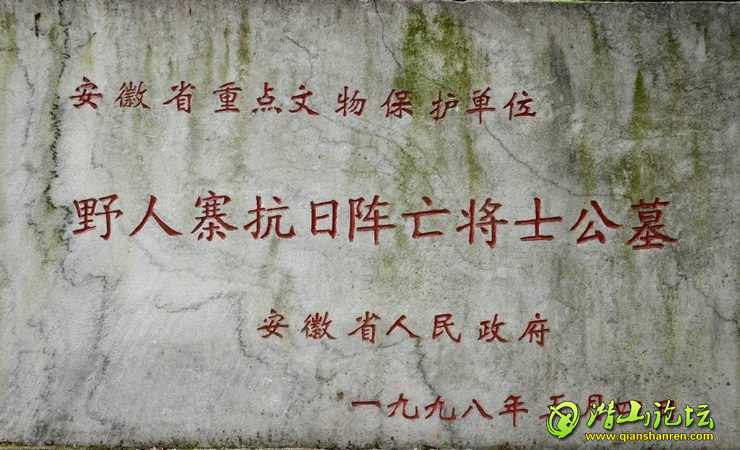 安徽省重点文物保护单位
野人寨抗日阵亡将士公墓
安徽省人民政府
一九九八年五月四日
潜山论坛
www.qianshanren.com